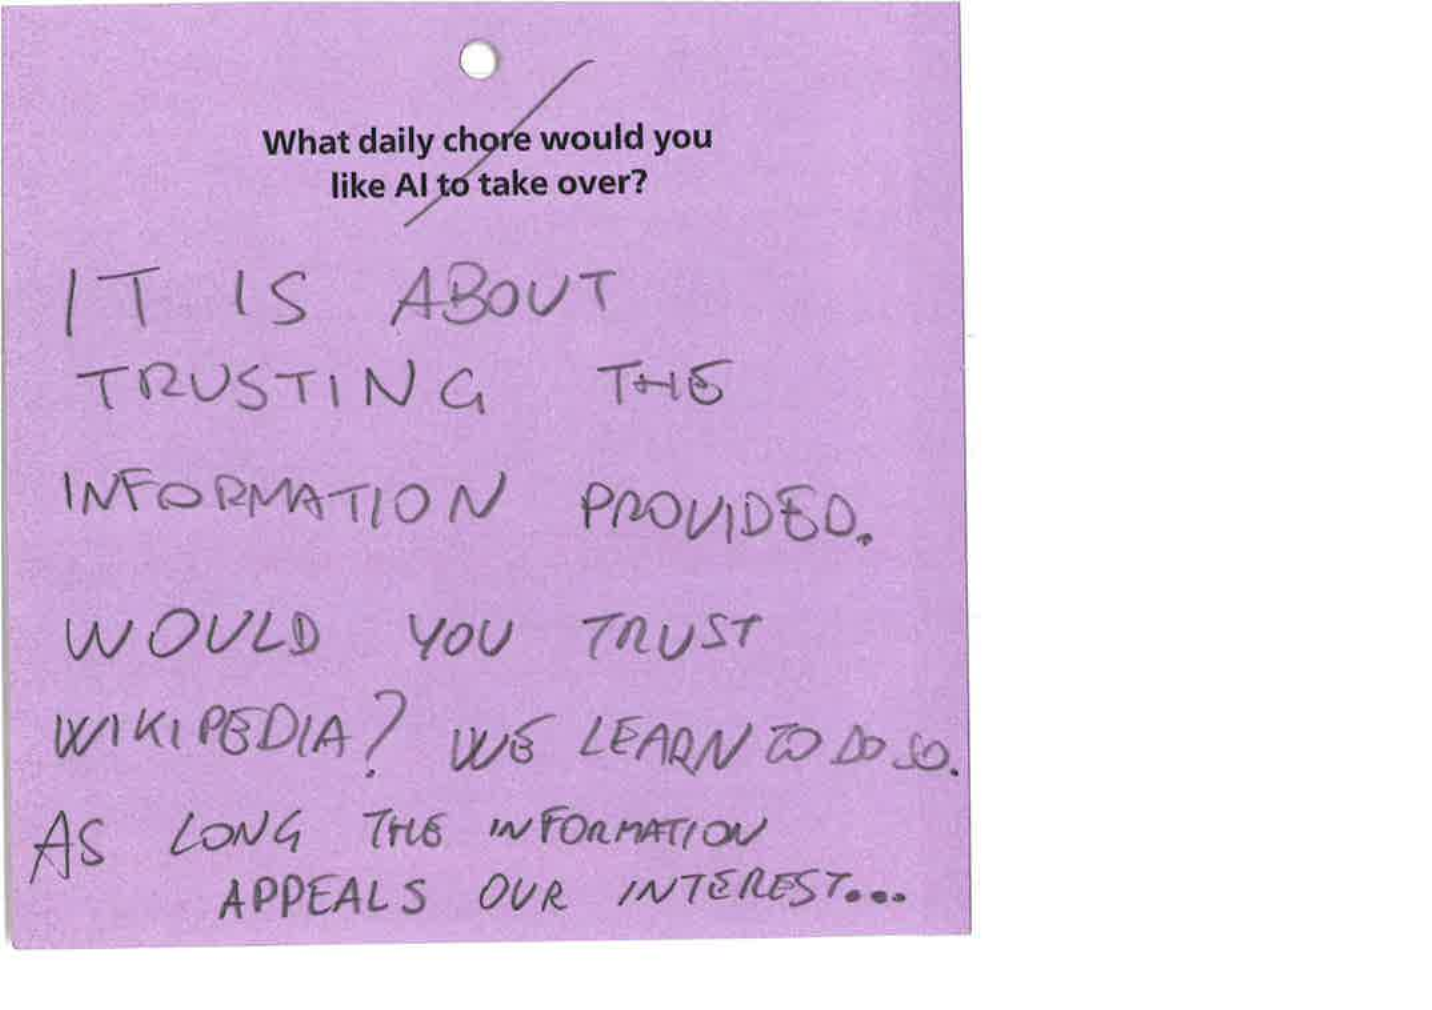 What daily chore would you
like AI to take over?
IT IS ABOUT
TRUSTING THE
INFORMATION PROVIDED.
WOULD YOU TRUST
WIKIPEDIA? WE LEARN TO DO SO.
AS LONG THE INFORMATION
APPEALS OUR INTEREST...